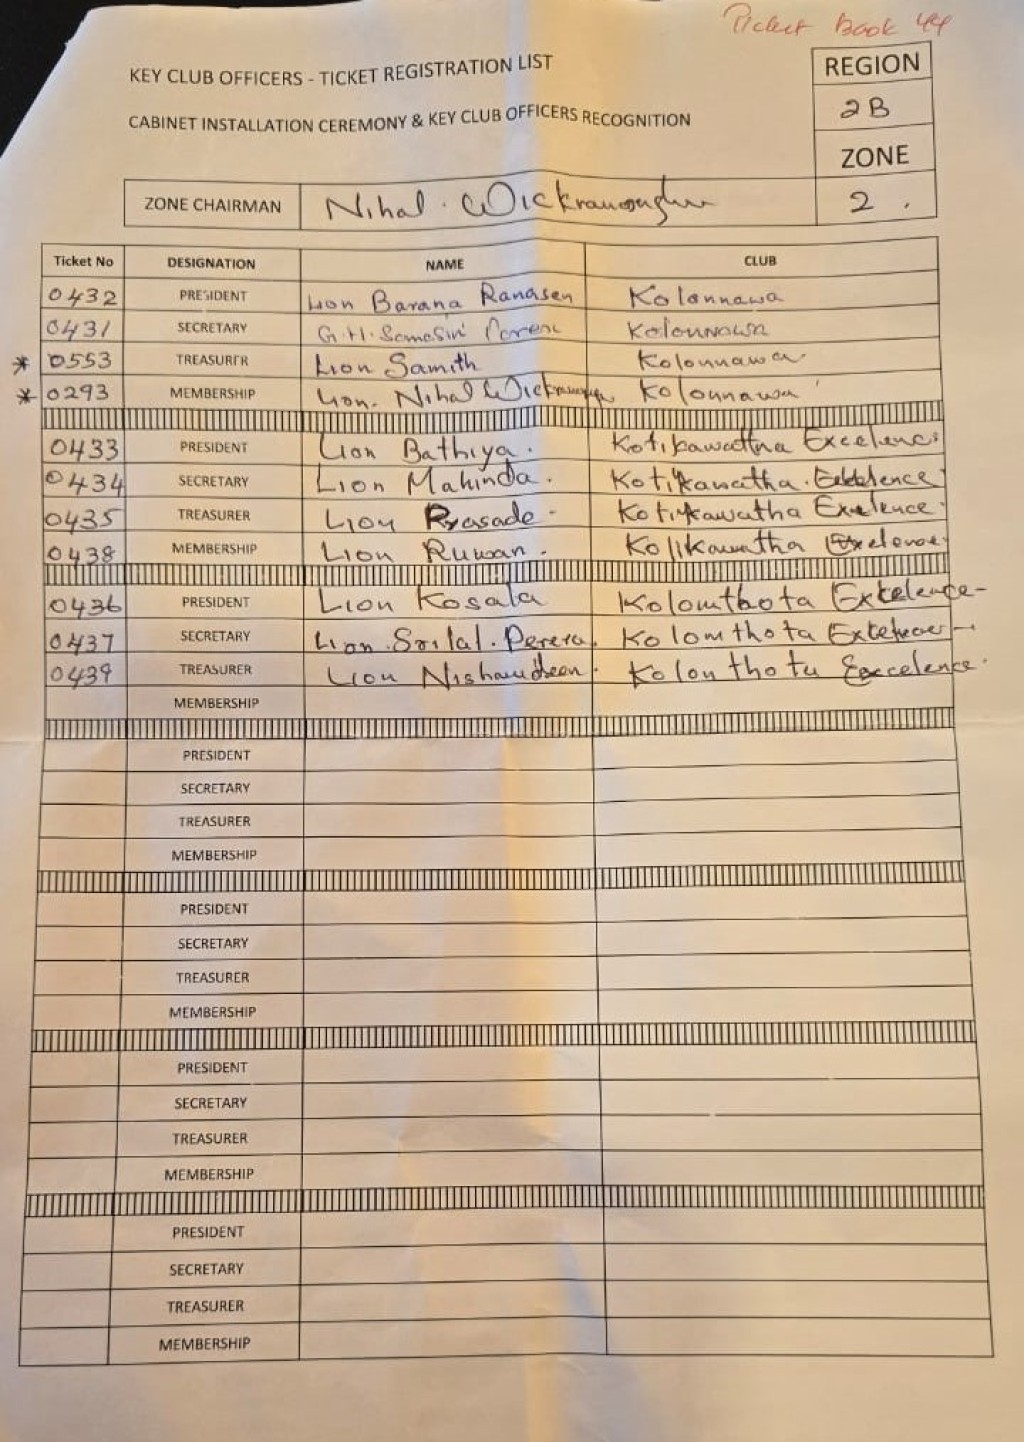 Ticket Book 44
KEY CLUB OFFICERS - TICKET REGISTRATION LIST
CABINET INSTALLATION CEREMONY & KEY CLUB OFFICERS RECOGNITION
REGION
2B
ZONE
2 .
ZONE CHAIRMAN Nihal .
Ticket No DESIGNATION NAME CLUB
0432 PRESIDENT Lion Barana Ranasen Kolonnawa
0431 SECRETARY G.H. Somasiri Kolonnawa
* 0553 TREASURER Lion Samith Kolonnawa
* 0293 MEMBERSHIP Lion. Nihal Kolonnawa
0433 PRESIDENT Lion Bathiya. Kotikawattha
0434 SECRETARY Lion Mahinda. Kotikawatha.
0435 TREASURER Lion Kotikawatha
0438 MEMBERSHIP Lion Ruwan. Kolikawatha
0436 PRESIDENT Lion Kosala Kolomthota
0437 SECRETARY Lion. Srilal. Perera. Kolomthota
0439 TREASURER Lion
MEMBERSHIP
PRESIDENT
SECRETARY
TREASURER
MEMBERSHIP
PRESIDENT
SECRETARY
TREASURER
MEMBERSHIP
PRESIDENT
SECRETARY
TREASURER
MEMBERSHIP
PRESIDENT
SECRETARY
TREASURER
MEMBERSHIP